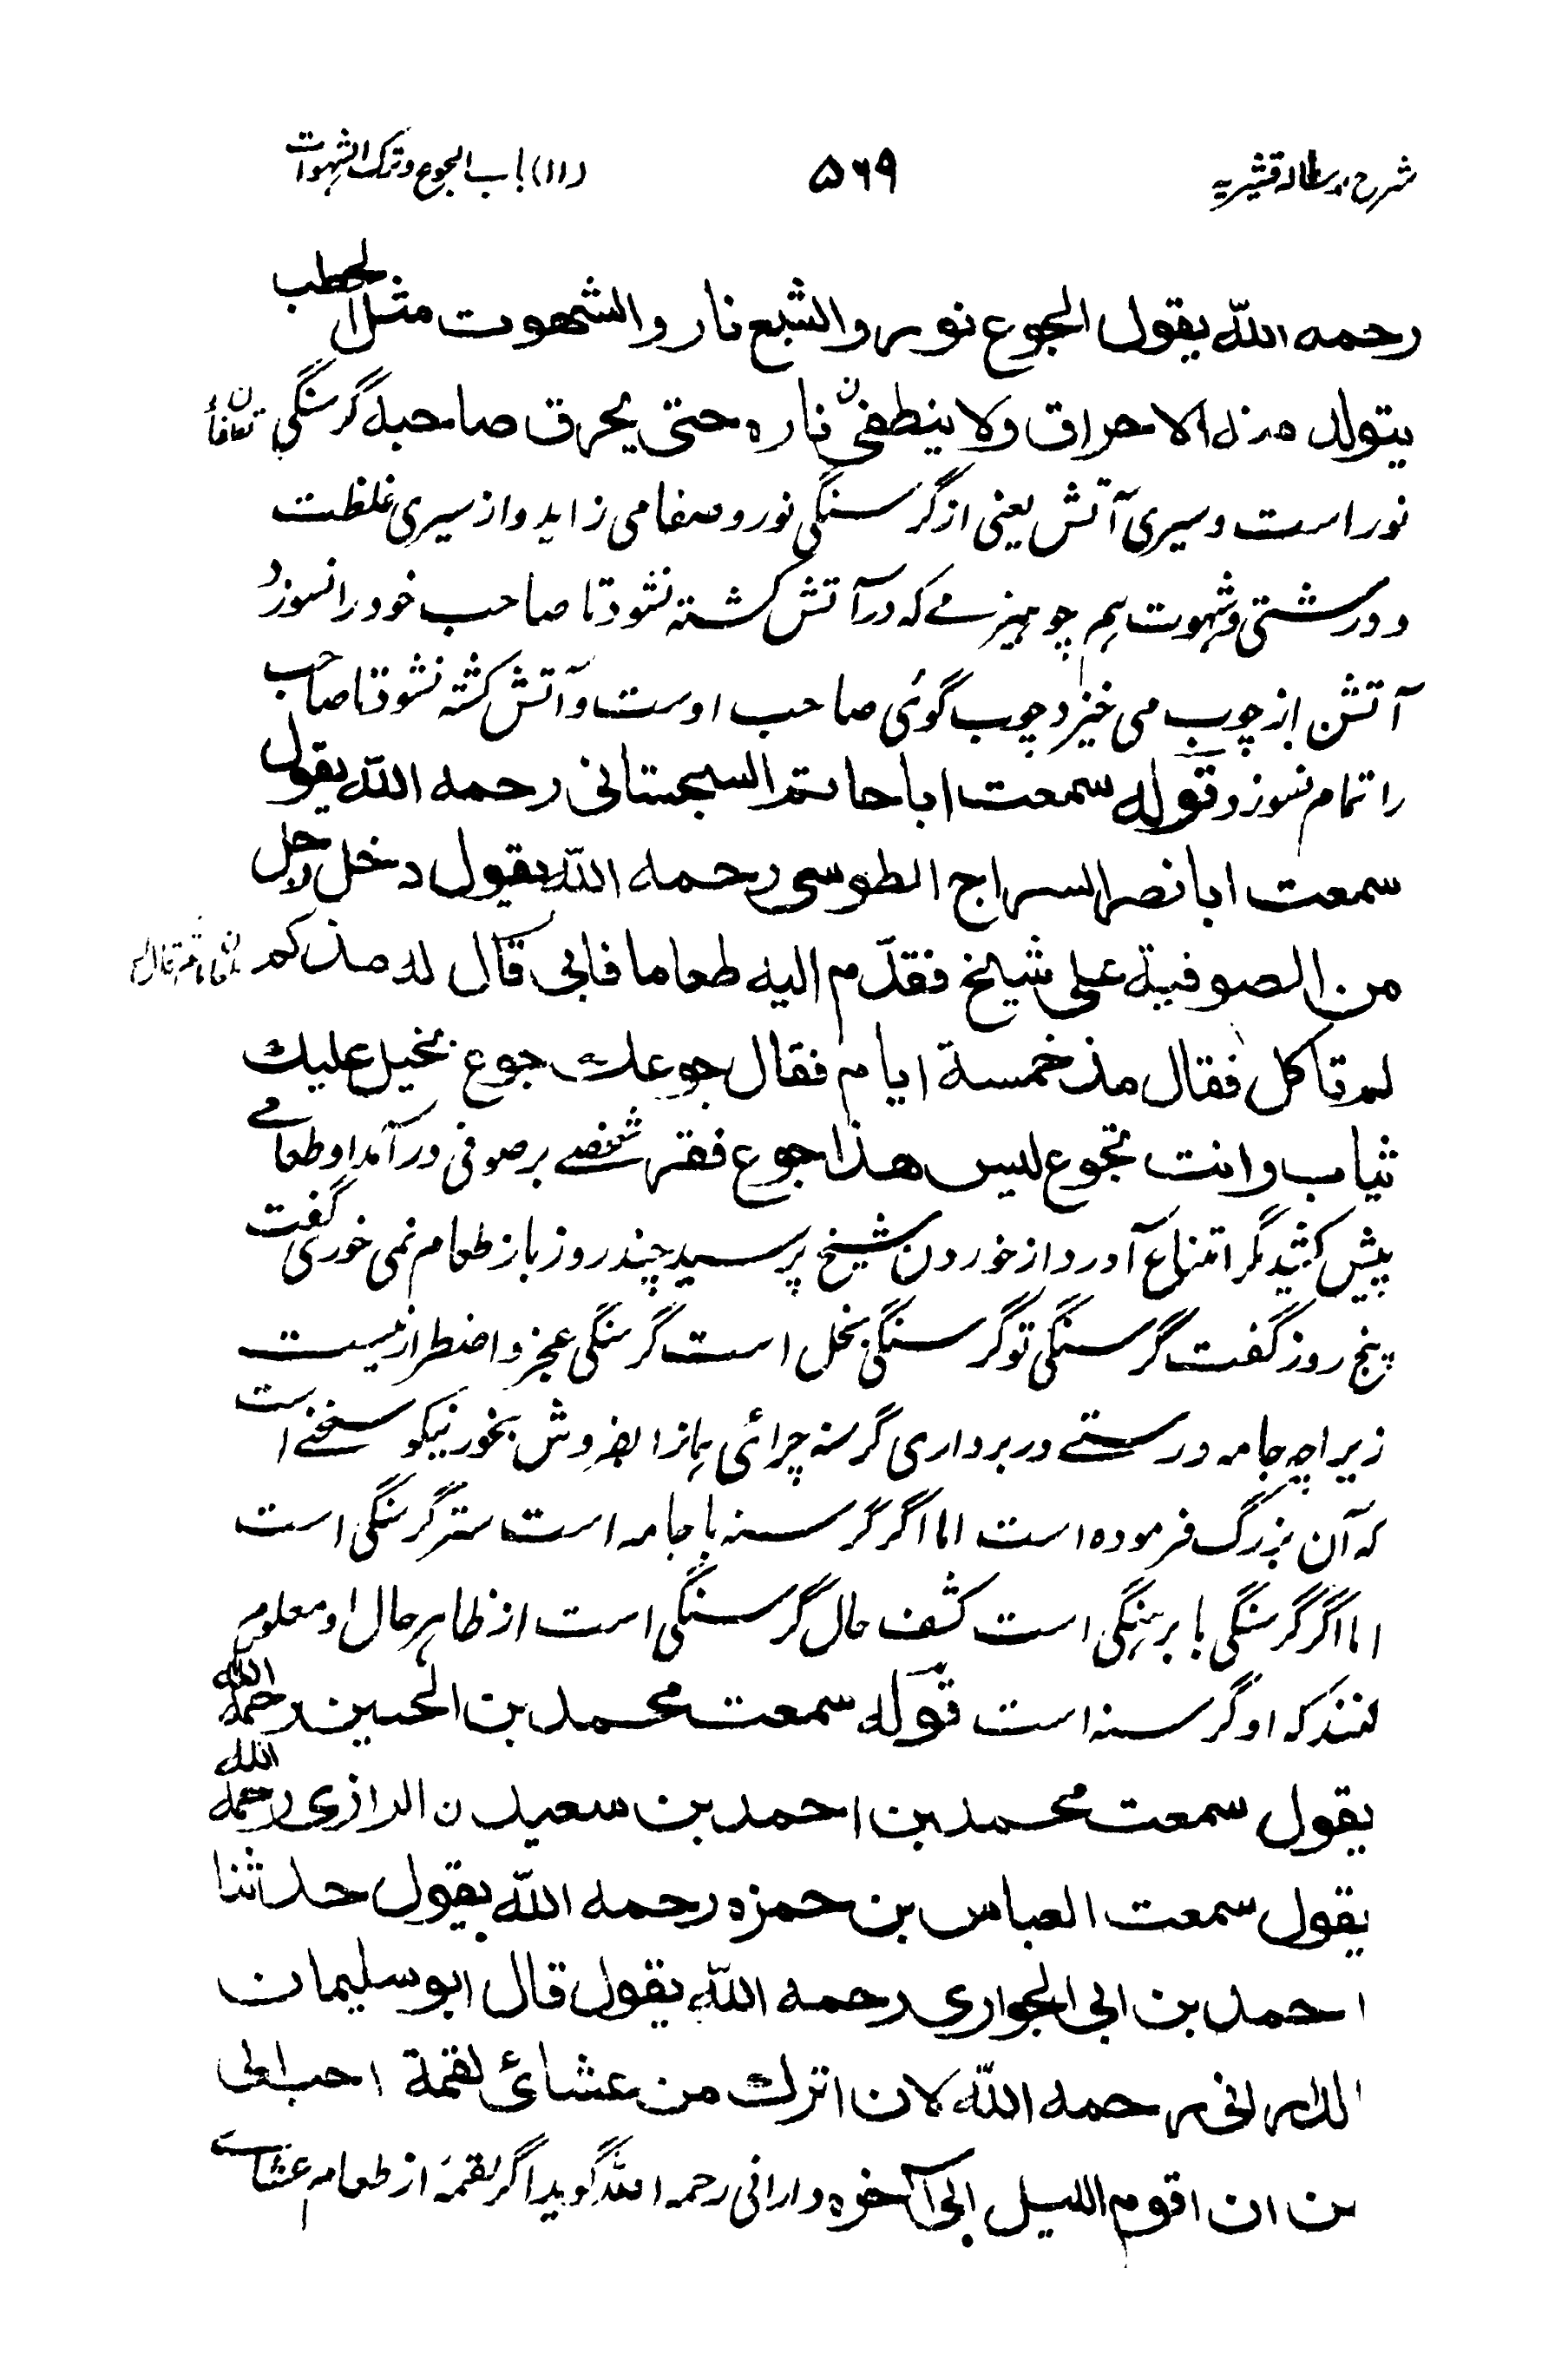 شرح رسالہ قشیریہ ۵۶۹ (۱۱) باب الجوع وترک الشہوات
رحمه الله يقول الجوع نور والشبع نار والشهوت مثل الحطب
يتولد منه الاحراق ولا ينطفئ ناره حتى يحرق صاحبه گرسنگی
نور است وسیری آتش یعنی از گرسنگی نور وصفا می زاید واز سیری غلظت
ودرشتی وشہوت ہم چو ہیزمے کہ در آتش کشتہ نشود تا صاحب خود را نسوزد
آتش از چوب می خیزد چوب گوئی صاحب اوست وآتش کشتہ نشود تا صاحب
را تمام نسوزد قوله سمعت ابا حاتم السجستانی رحمه الله يقول
سمعت ابا نصر السراج الطوسی رحمه الله يقول دخل رجل
من الصوفية على شيخ فقدّم اليه طعاما فابى قال له مذ كم
لم تاكل فقال مذ خمسة ايام فقال جوعك جوع بخيل عليك
ثياب وانت تجوع ليس هذا جوع فقر شخصے بر صوفی در آمد او طعامے
پیش کشید مگر امتناع آورد از خوردن شیخ پرسید چند روز باز طعام نمی خوری گفت
پنج روز گفت گرسنگی تو گرسنگی بخل است گرسنگی عجز واضطرار نیست
زیرا چہ جامہ درستے در برداری گرسنہ چرائی بمانز ا بفروش بخور نیکو سخنے است
کہ آن بزرگ فرمودہ است اما اگر گرسنہ با جامہ است ستر گرسنگی است
اما اگر گرسنگی با برہنگی است کشف حال گرسنگی است از ظاہر حال او معلوم
کنند کہ او گرسنہ است قوله سمعت محمد بن الحسين رحمه الله
يقول سمعت محمد بن احمد بن سعيد ن الرازی رحمه الله
يقول سمعت العباس بن حمزه رحمه الله يقول حدثنا
احمد بن ابی الجواری رحمه الله يقول قال ابو سليمان
الدارانی رحمه الله لان اترك من عشائی لقمة احب الی
من ان اقوم الليل الی آخره دارانی رحمہ اللہ گوید اگر لقمۂ از طعام عشاے